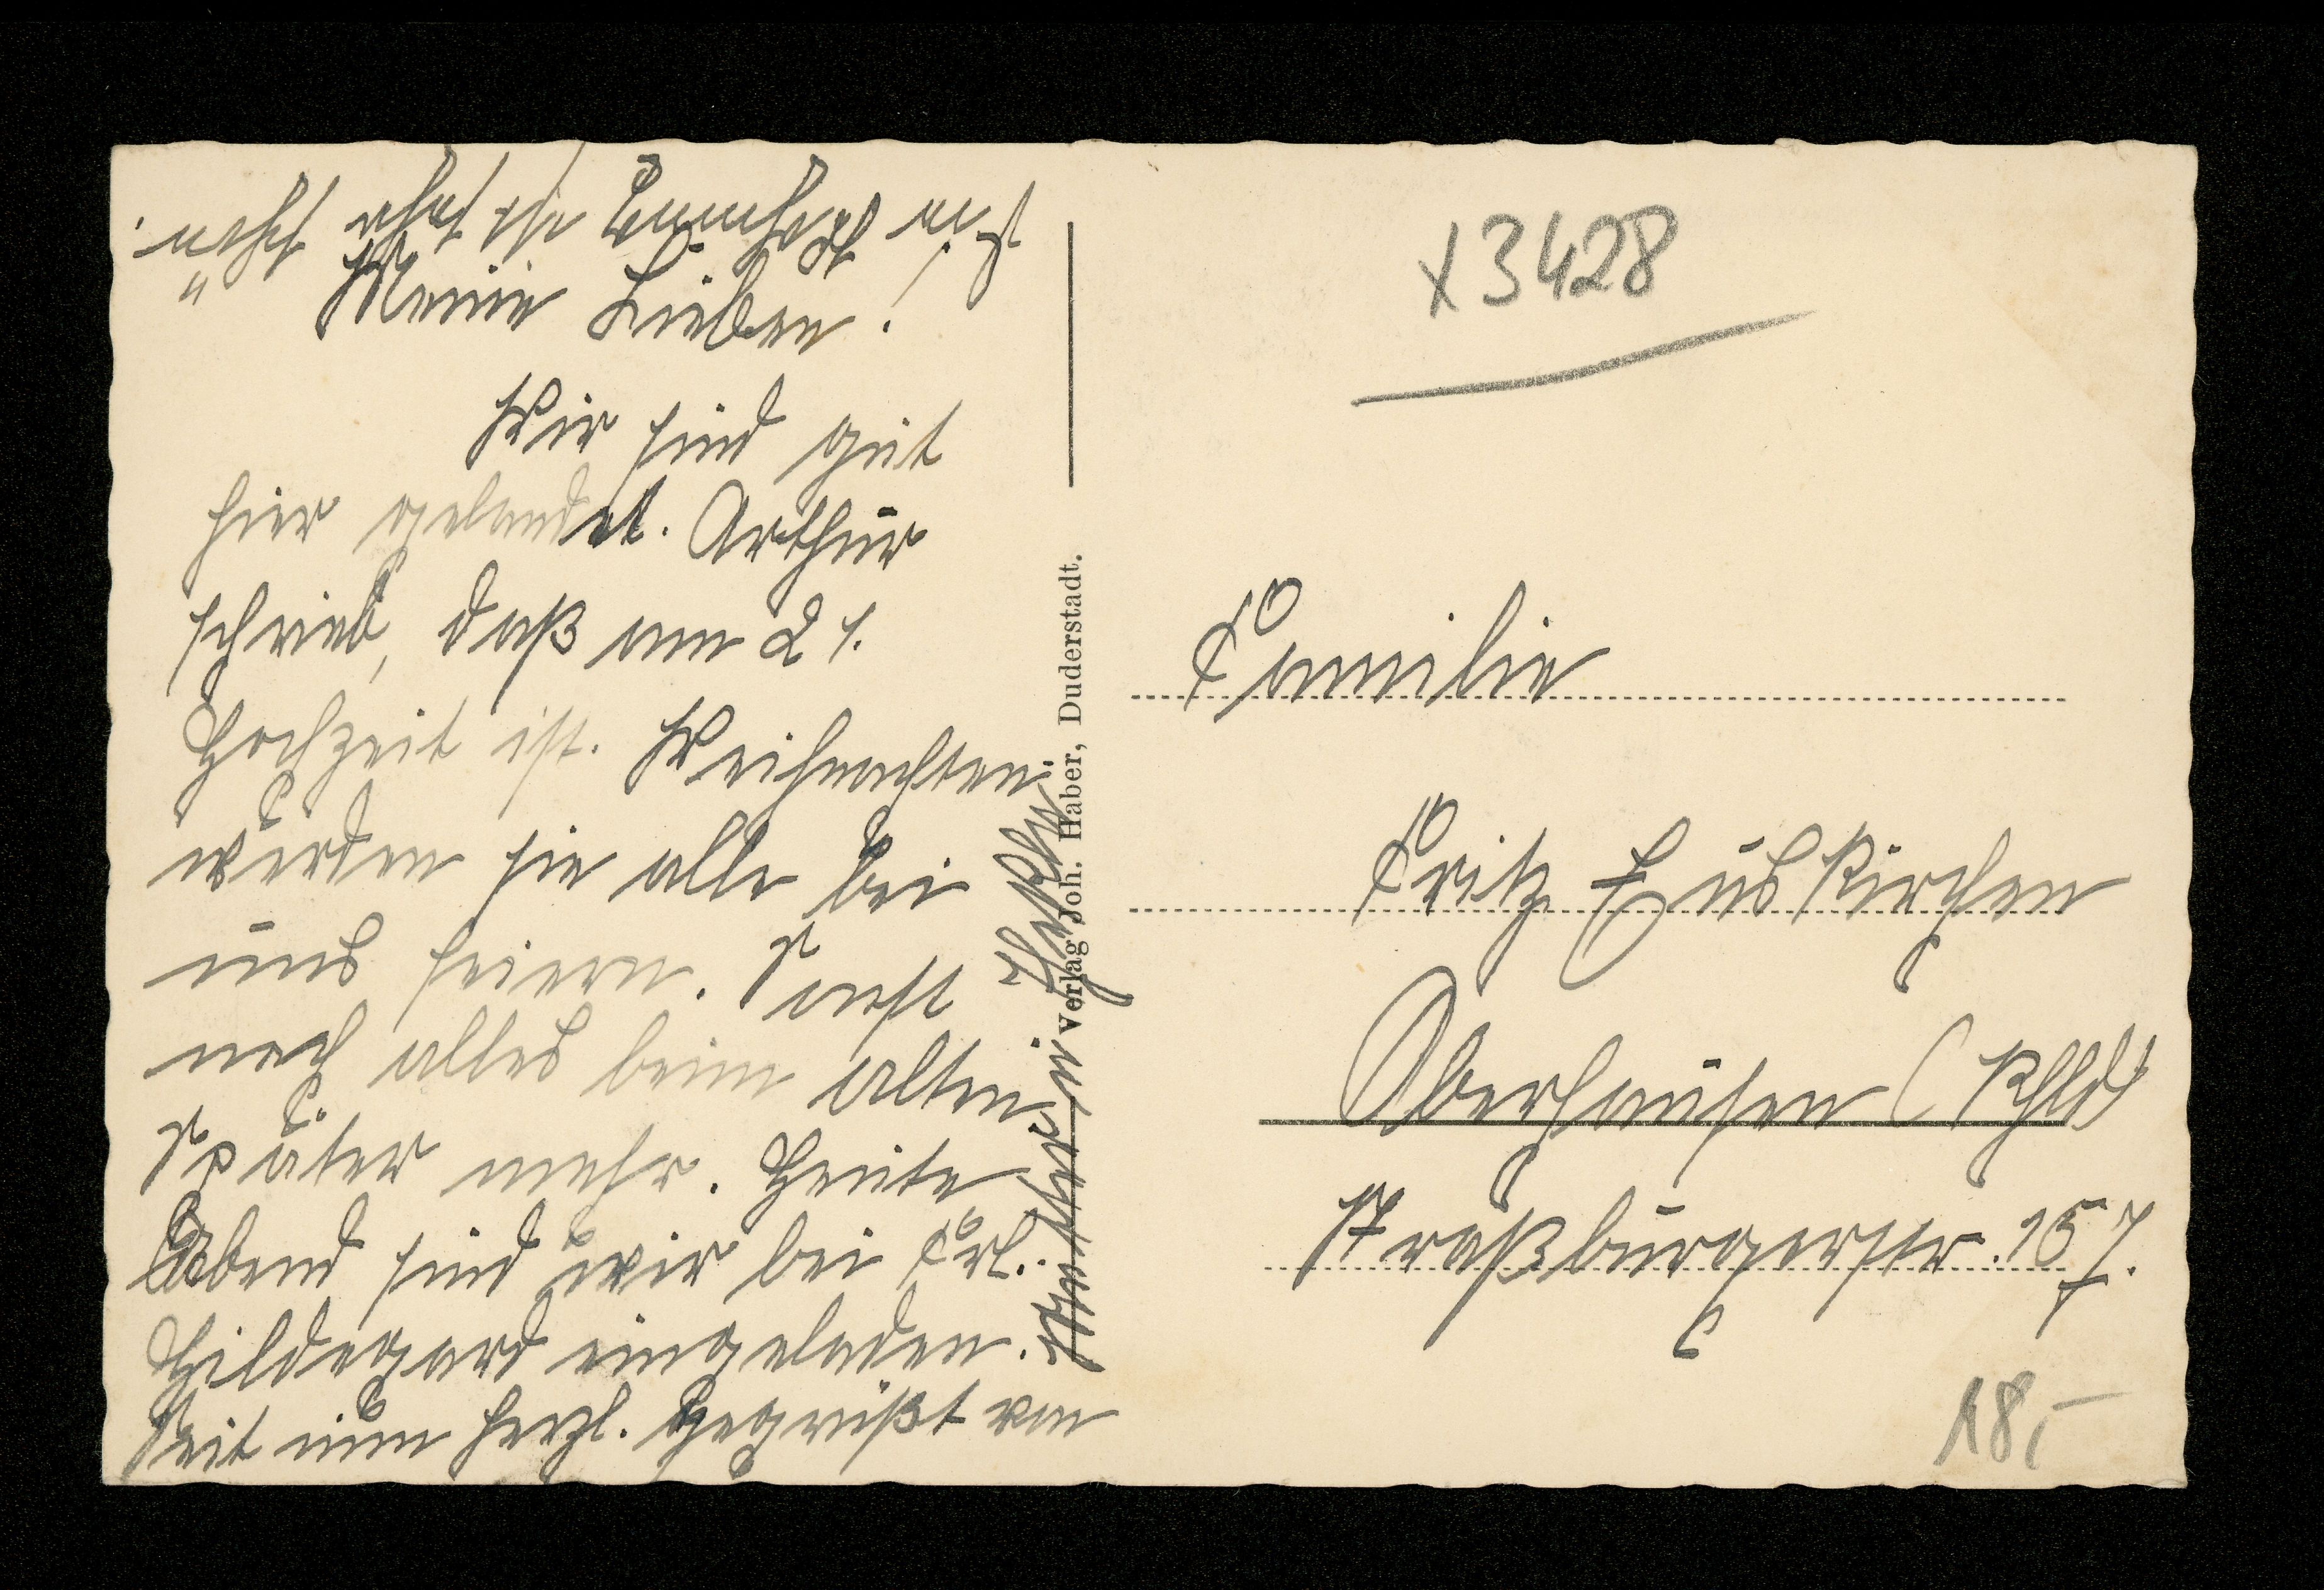 Meine Lieben!
Wir sind gut
hier gelandet. Arthur
schrieb, daß am 21.
Hochzeit ist. Weihnachten
würden sie alle bei
uns feiern. Sonst
noch alles beim alten
Später mehr. Heute
Abend sind wir bei Frl.
Hildegard eingeladen.
Seit nun herzl. gegrüßt von
Günther u.
Die Wohnung ist sehr schön.
Verlag Joh. Haber, Duderstadt.
x 3428
Familie
Fritz Euskirchen
Oberhausen (Rhld)
Straßburgerstr. 157.
18,-